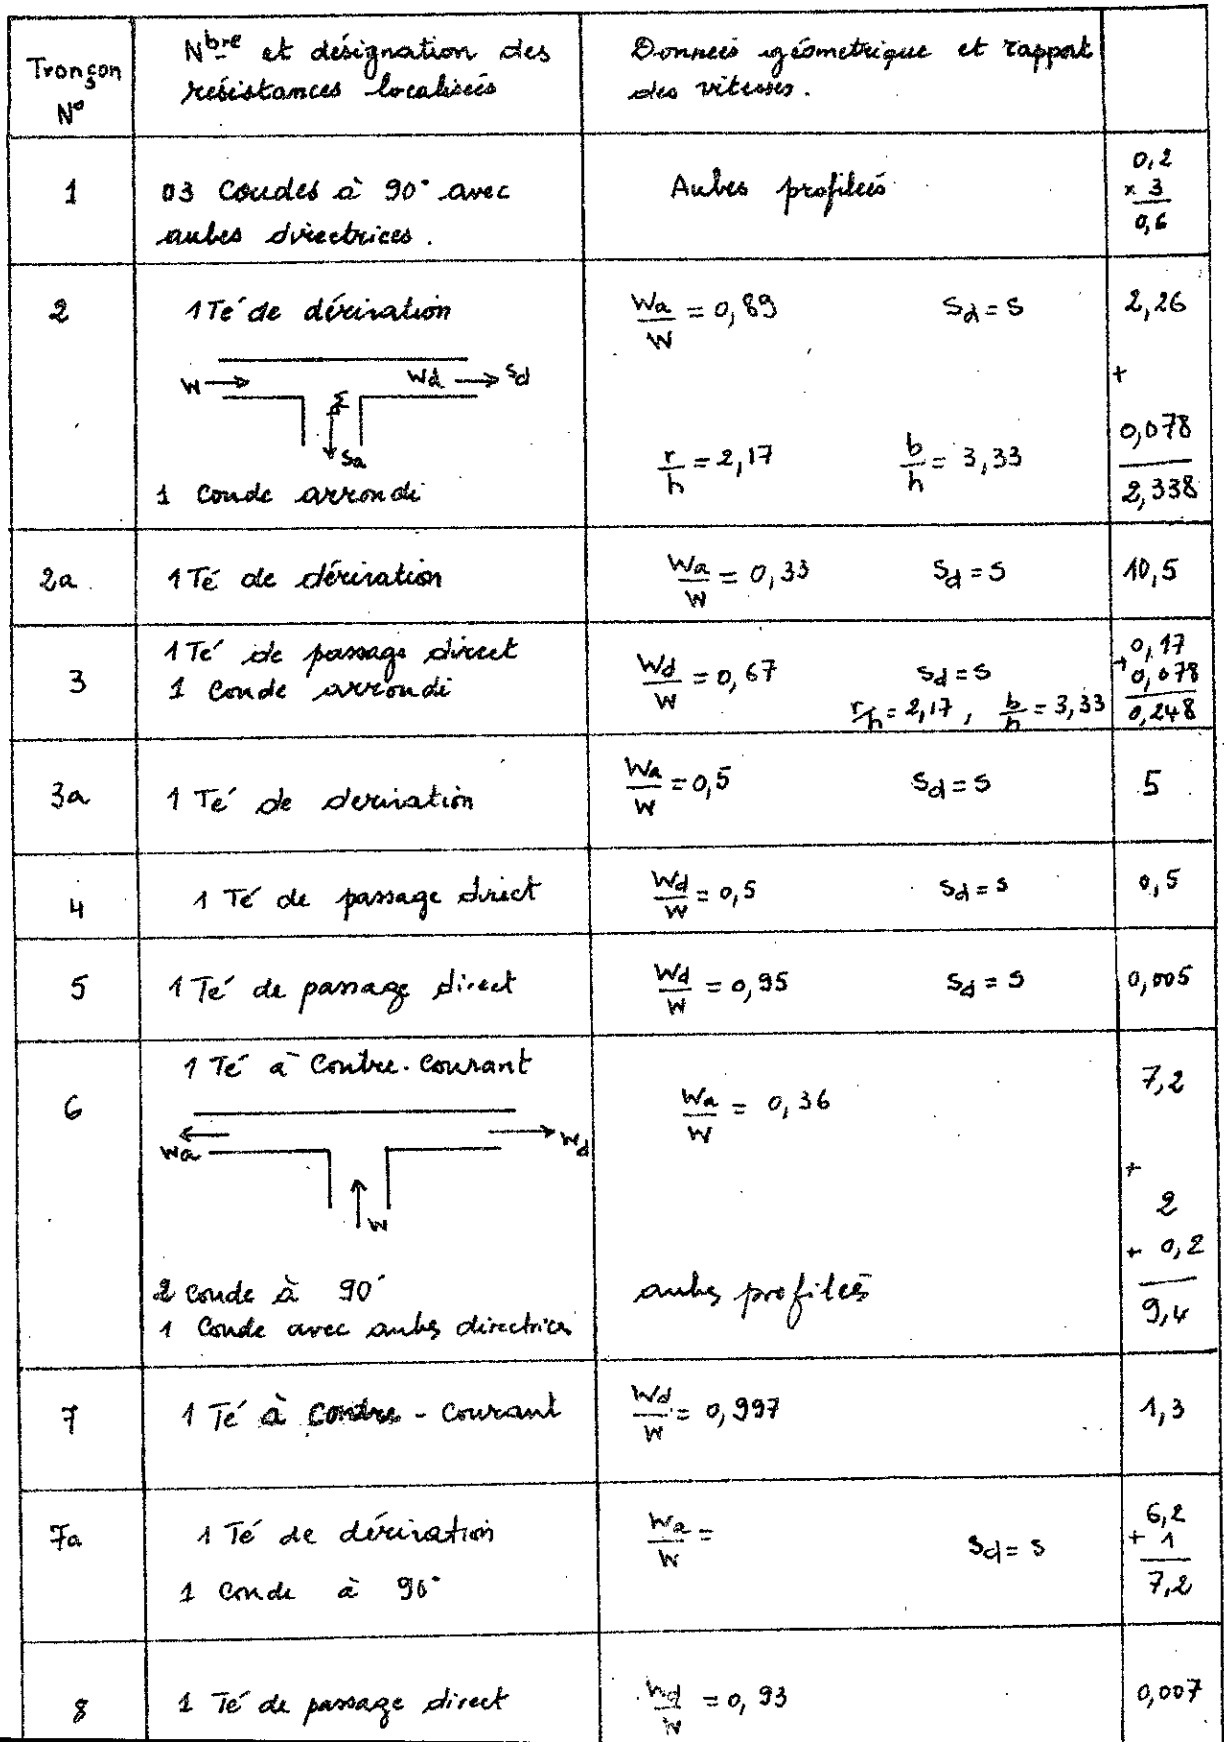 Tronçon
N°
Nbre et désignation des
résistances localisées
Données géometrique et rapport
des vitesses.
1
03 Coudes à 90° avec
aubes directrices.
Aubes profilées
0,2
x 3
0,6
2
1 Té de dérivation
W → Wd → Sd
Sa
1 Coude arrondi
Wa/W = 0,89 Sd = S
r/h = 2,17 b/h = 3,33
2,26
+
0,078
2,338
2a
1 Té de dérivation
Wa/W = 0,33 Sd = S
10,5
3
1 Té de passage direct
1 Coude arrondi
Wd/W = 0,67 Sd = S
r/h = 2,17, b/h = 3,33
0,17
+ 0,078
0,248
3a
1 Té de derivation
Wa/W = 0,5 Sd = S
5
4
1 Té de passage direct
Wd/W = 0,5 Sd = S
0,5
5
1 Té de passage direct
Wd/W = 0,95 Sd = S
0,005
6
1 Té à Contre-Courant
Wa ← → Wd
↑ W
2 Coude à 90°
1 Coude avec aubes directrices
Wa/W = 0,36
aubes profilées
7,2
+
2
+ 0,2
9,4
7
1 Té à Contre - Courant
Wd/W = 0,997
1,3
7a
1 Té de dérivation
1 Coude à 90°
Wa/W = Sd = S
6,2
+ 1
7,2
8
1 Té de passage direct
Wd/W = 0,93
0,007